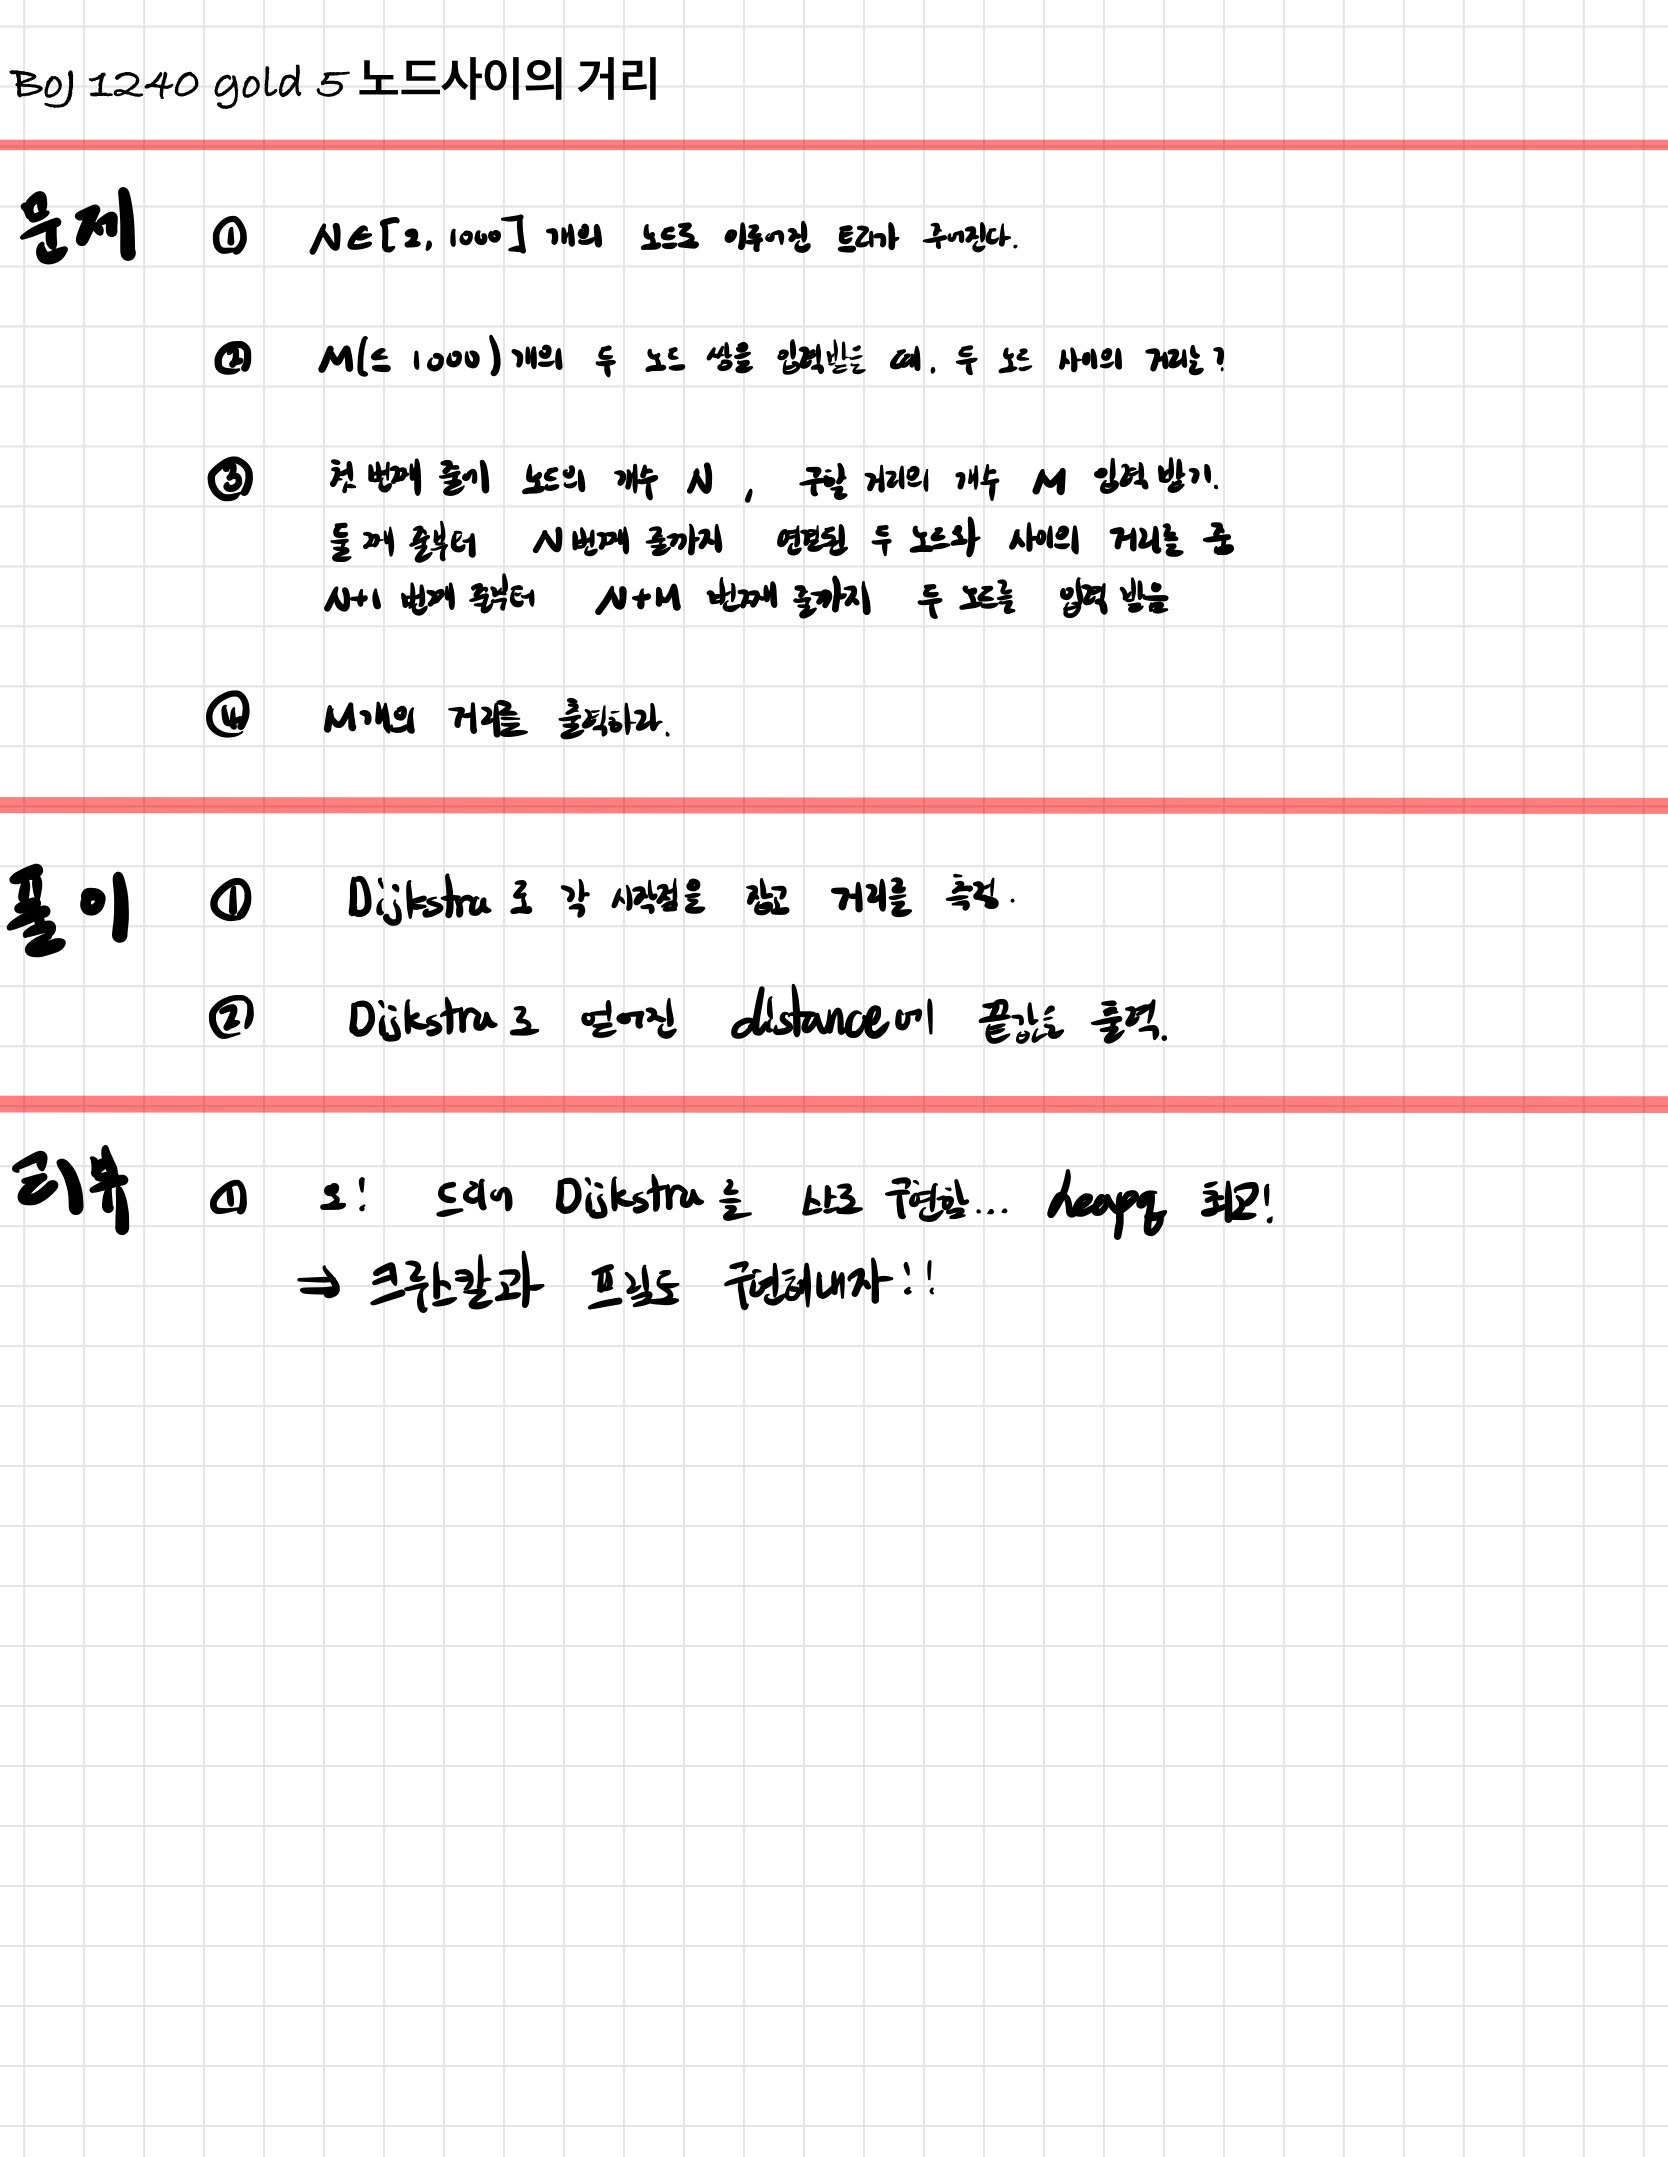 BOJ 1240 gold 5 노드사이의 거리
문제 ① N∈[2, 1000] 개의 노드로 이루어진 트리가 주어진다.
② M(≤ 1000) 개의 두 노드 쌍을 입력받을 때, 두 노드 사이의 거리는?
③ 첫 번째 줄에 노드의 개수 N, 구할 거리의 개수 M 입력 받기.
둘 째 줄부터 N번째 줄까지 연결된 두 노드와 사이의 거리를 줌
N+1 번째 줄부터 N+M 번째 줄까지 두 노드를 입력 받음
④ M개의 거리를 출력하라.
풀이 ① Dijkstra로 각 시작점을 잡고 거리를 측정.
② Dijkstra로 얻어진 distance에 끝값을 출력.
리뷰 ① 오! 드디어 Dijkstra를 스스로 구현함... heapq 최고!
⇒ 크루스칼과 프림도 구현해내자!!